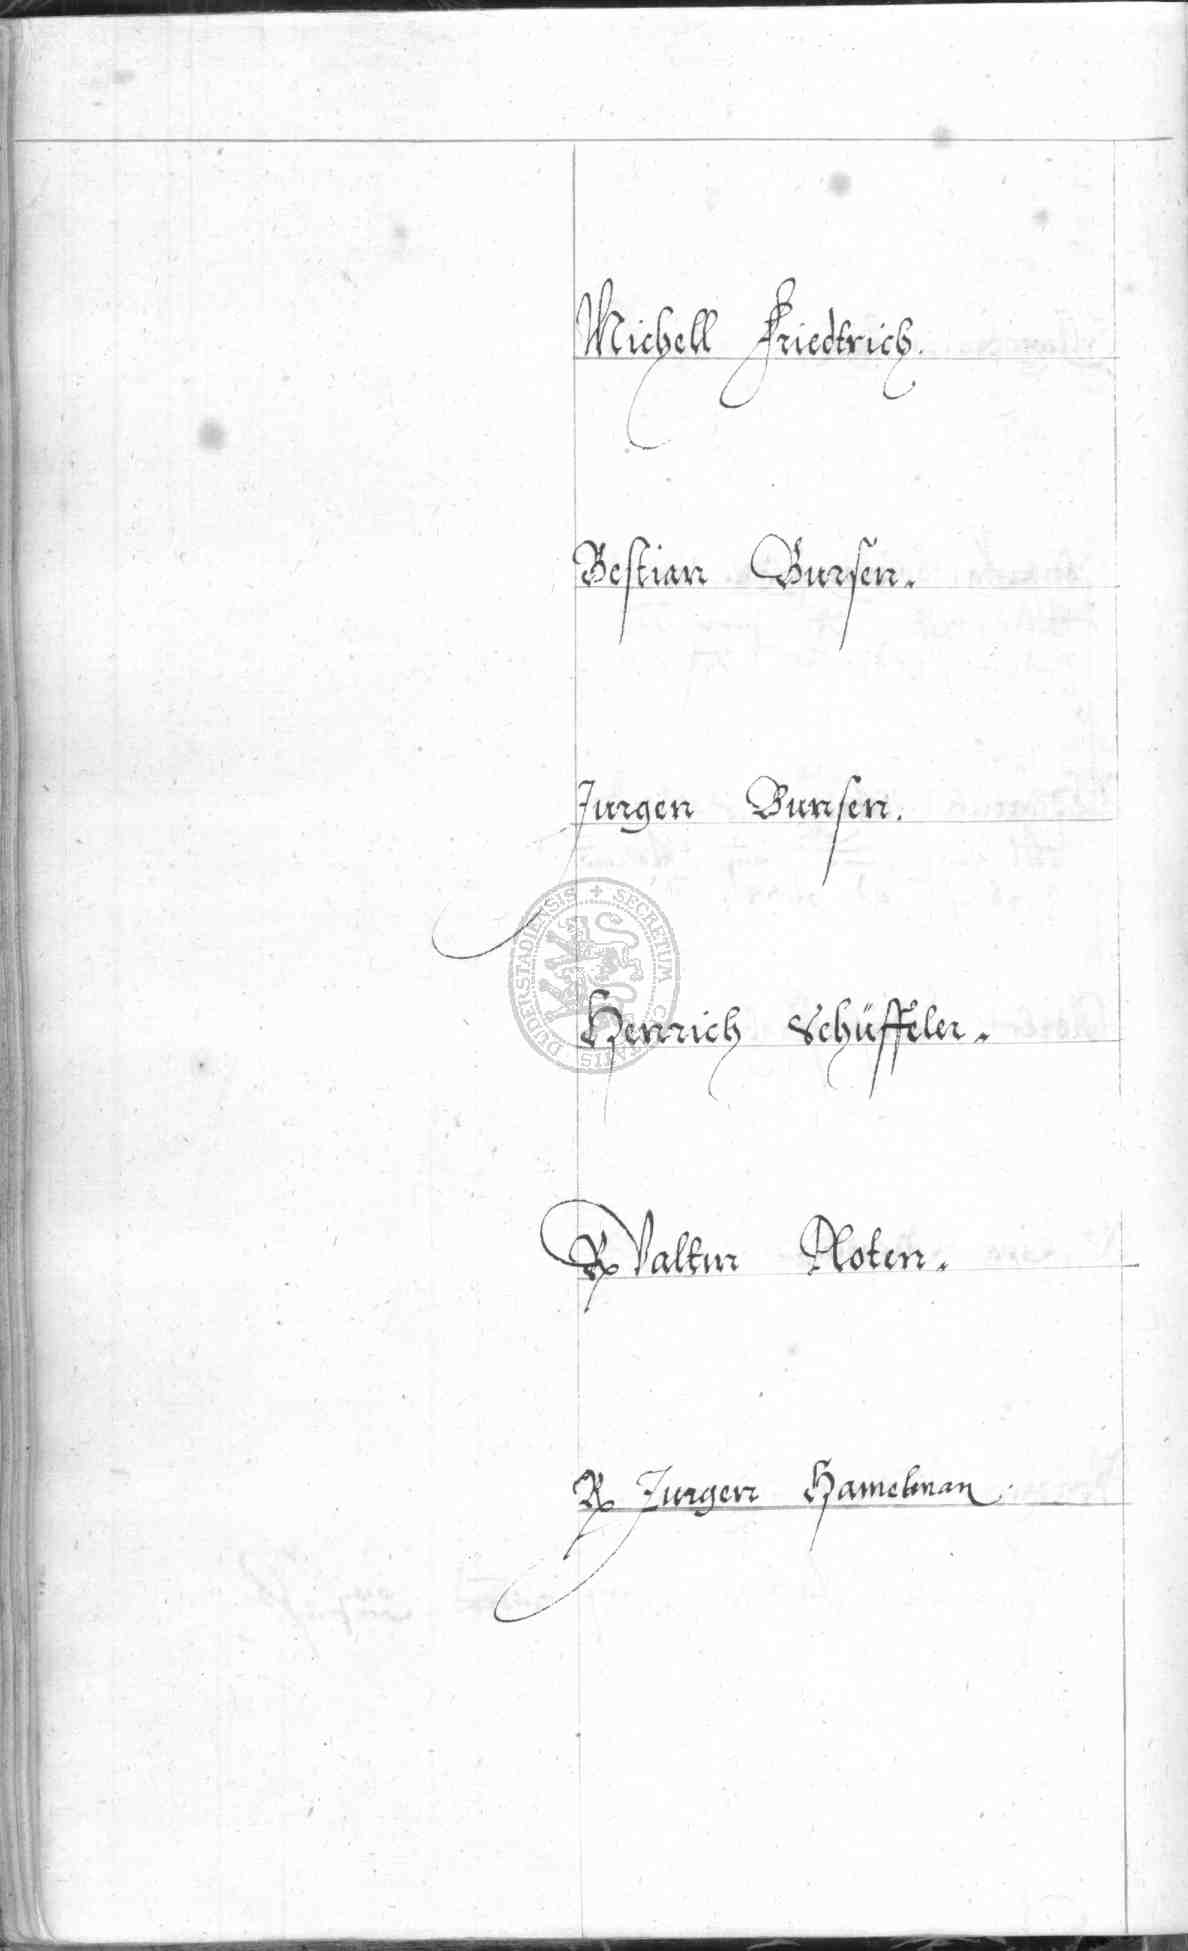 Michell Friedtrich.
Bestian Bursen.
Jurgen Bunsen.
Henrich Schüffeler.
Valtin Ploten.
Jurgen Hamelman.
SECRETUM CIVITATIS DUDERSTADIENSIS